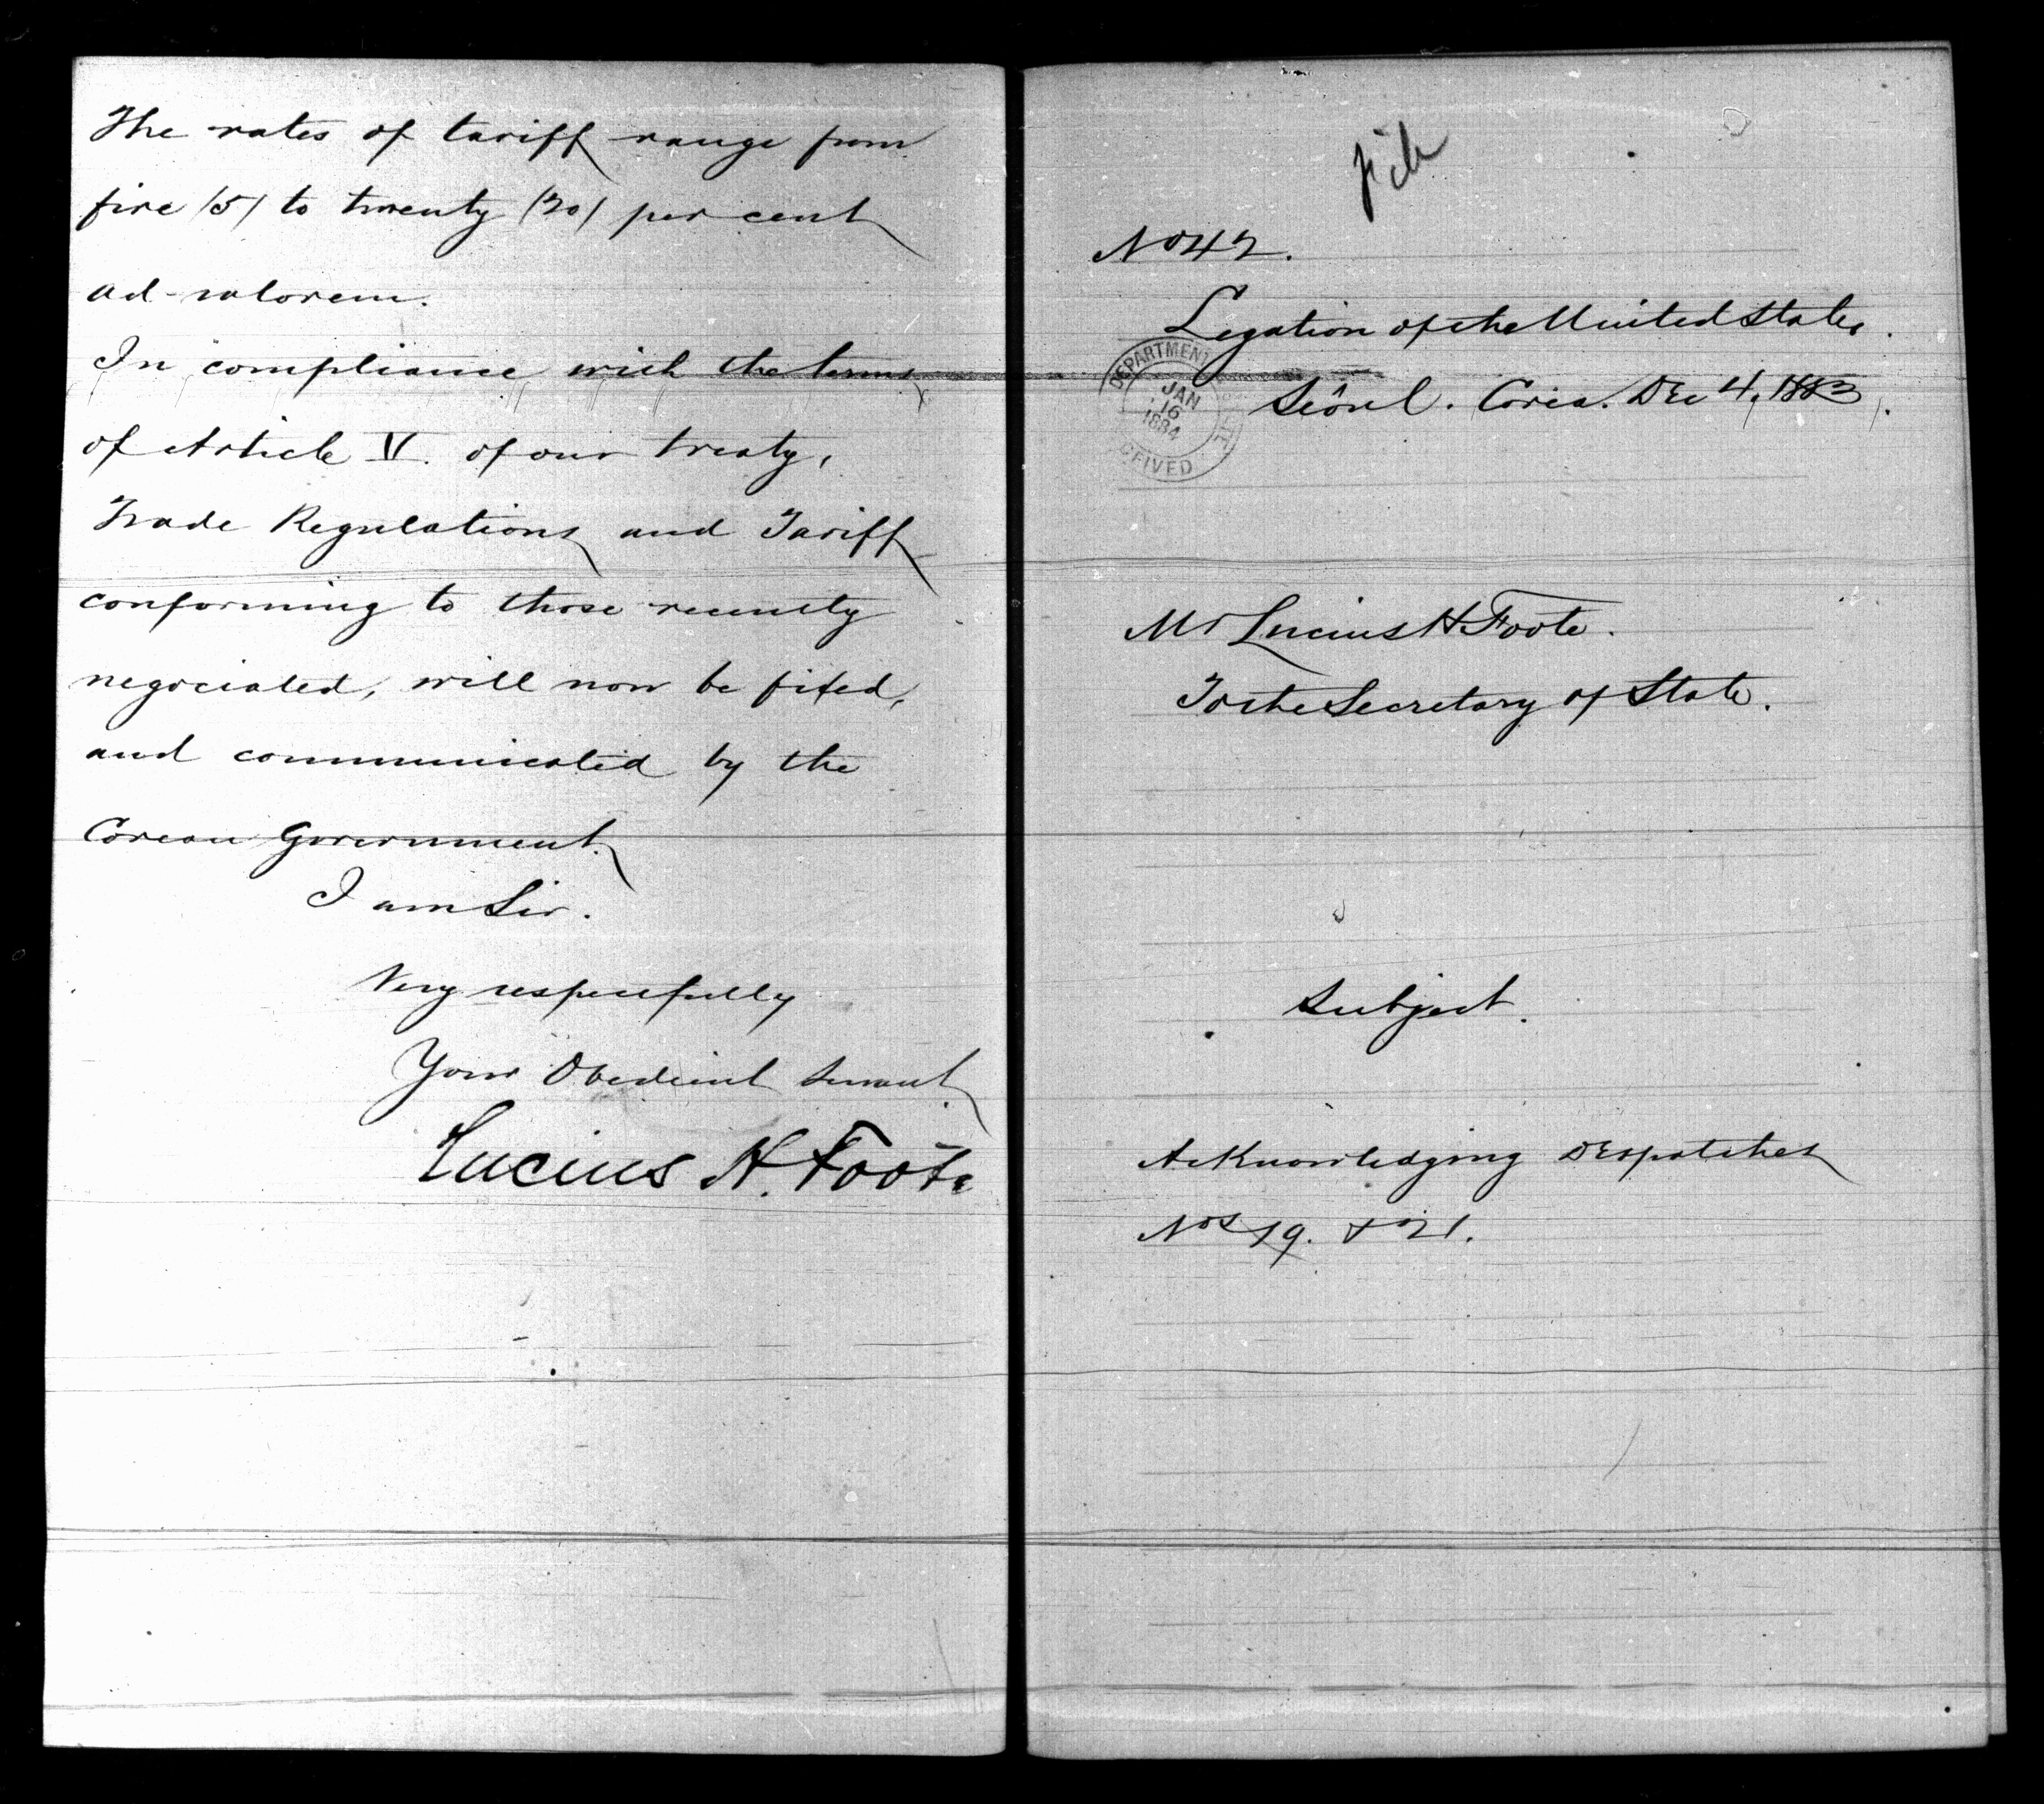 The rates of tariff range from
five (5) to twenty (20) per cent
ad-valorem.
In compliance with the terms
of Article V. of our treaty,
Trade Regulations and Tariff
conforming to those recently
negociated, will now be fixed,
and communicated by the
Corean Government.
I am Sir.
Very respectfully
Your Obedient Servant
Lucius H. Foote
File
No 42.
Legation of the United States.
Seoul. Corea. Dec 4, 1883.
DEPARTMENT
JAN
16
1884
Mr Lucius H Foote.
To the Secretary of State.
Subject.
Acknowledging Despatches
Nos 19. & 21.